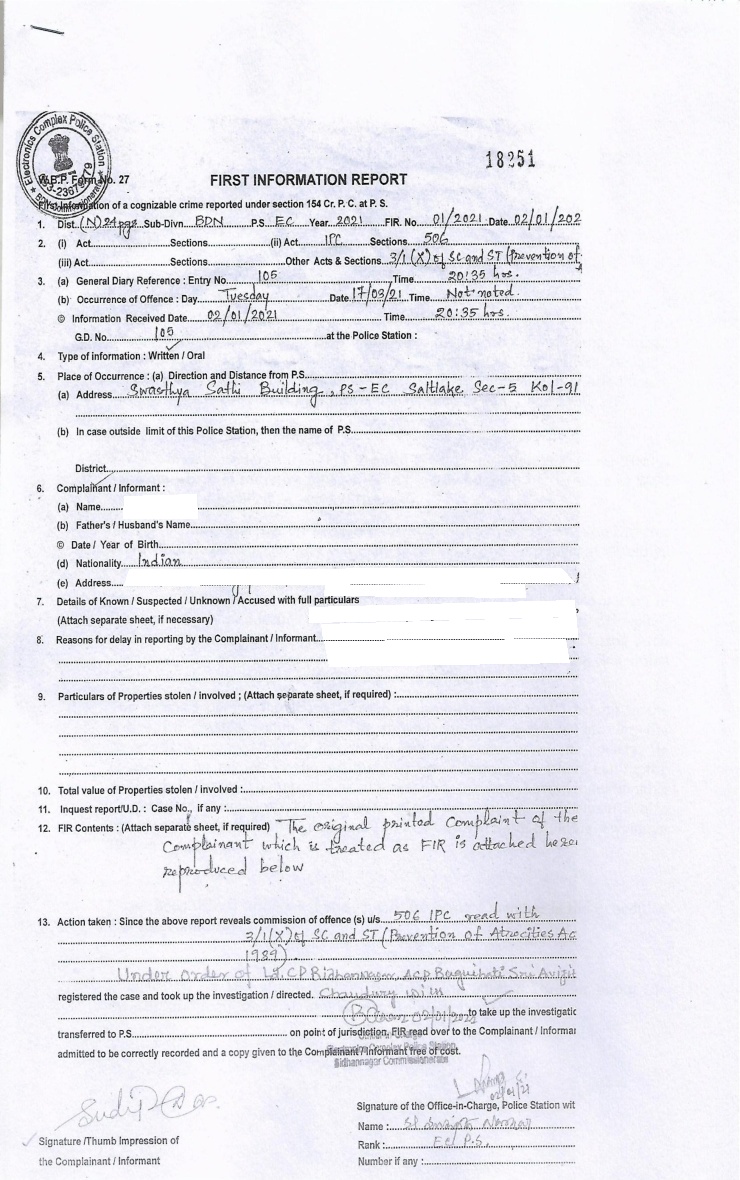 Electronics Complex Police Station
18251
W.B.P. Form No. 27
FIRST INFORMATION REPORT
First Information of a cognizable crime reported under section 154 Cr. P. C. at P. S.
1. Dist. (N) 24 pgs Sub-Divn. BDN P.S. EC Year 2021 FIR. No. 01/2021 Date 02/01/202
2. (i) Act Sections (ii) Act IPC Sections 506
(iii) Act Sections Other Acts & Sections 3/1(X) of SC and ST (Prevention of
3. (a) General Diary Reference : Entry No. 105 Time 20:35 hrs.
(b) Occurrence of Offence : Day Tuesday Date 17/03/21 Time Not noted.
© Information Received Date 02/01/2021 Time 20:35 hrs.
G.D. No. 105 at the Police Station :
4. Type of information : Written / Oral
5. Place of Occurrence : (a) Direction and Distance from P.S.
(a) Address Swasthya Sathi Building, PS-EC Saltlake Sec-5 Kol-91
(b) In case outside limit of this Police Station, then the name of P.S.
District
6. Complainant / Informant :
(a) Name
(b) Father's / Husband's Name
© Date / Year of Birth
(d) Nationality Indian
(e) Address
7. Details of Known / Suspected / Unknown / Accused with full particulars
(Attach separate sheet, if necessary)
8. Reasons for delay in reporting by the Complainant / Informant
9. Particulars of Properties stolen / involved ; (Attach separate sheet, if required) :
10. Total value of Properties stolen / involved :
11. Inquest report/U.D. : Case No., if any :
12. FIR Contents : (Attach separate sheet, if required) The original printed Complaint of the
Complainant which is treated as FIR is attached here
reproduced below
13. Action taken : Since the above report reveals commission of offence (s) u/s 506 IPC read with
3/1(X) of SC and ST (Prevention of Atrocities Ac
1989)
Under order of
registered the case and took up the investigation / directed.
02/01/2021 to take up the investigatic
transferred to P.S. on point of jurisdiction, FIR read over to the Complainant / Informar
admitted to be correctly recorded and a copy given to the Complainant / Informant free of cost.
02/01/21
Signature of the Office-in-Charge, Police Station wit
Name : SI
Signature /Thumb Impression of
Rank : EC P.S.
the Complainant / Informant
Number if any :